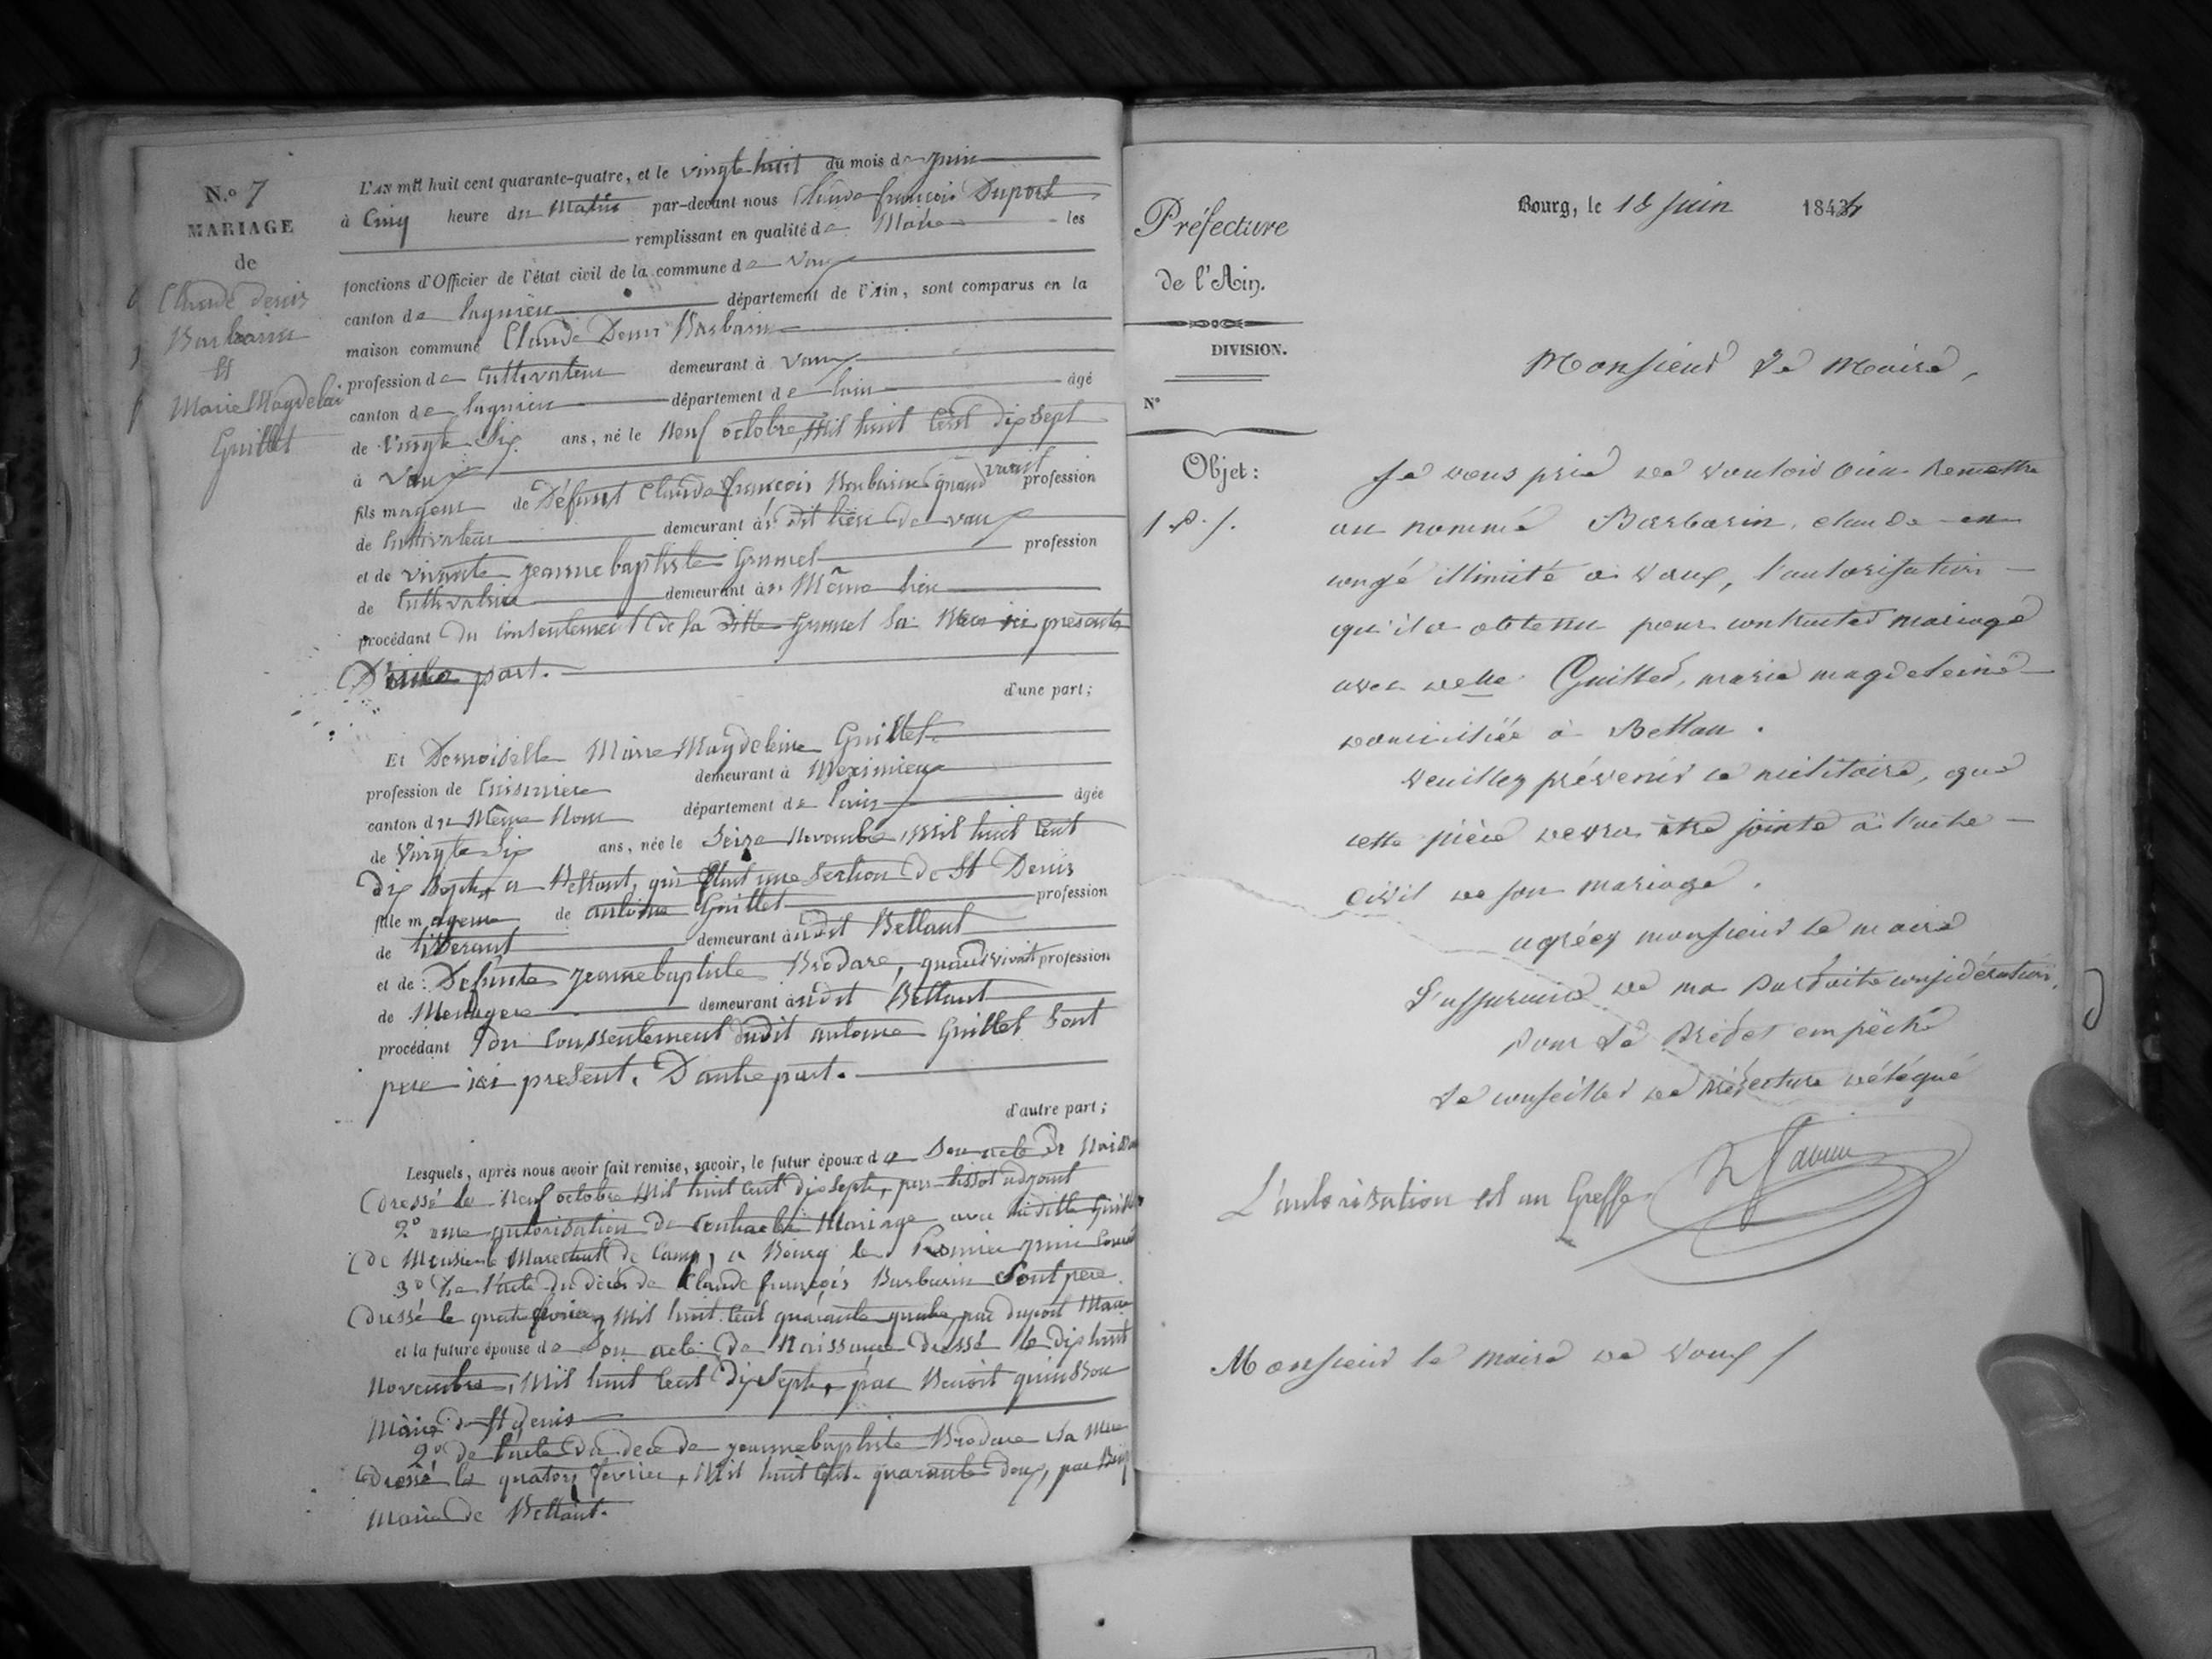 N.o 7
MARIAGE
de
Claude denis
Barbarin
et
Marie Magdelai
Guillet
L'AN mil huit cent quarante-quatre, et le vingt huit du mois de juin
à Cinq heure du Matin par-devant nous Claude françois Duport
remplissant en qualité de Maire les
fonctions d'Officier de l'état civil de la commune de Vaux
canton de lagnieu département de l'Ain, sont comparus en la
maison commune Claude Denis Barbarin
profession de Cultivateur demeurant à Vaux
canton de lagnieu département de lain âgé
de Vingt Six ans, né le Neuf octobre, Mil huit Cent dix Sept
à Vaux
fils mageur de Défunt Claude françois Barbarin quand vivait profession
de Cultivateur demeurant au dit lieu de vaux
et de vivante jeanne baptiste Grumel profession
de Cultivatrice demeurant au Même lieu
procédant du Consentement de la ditte Grumel Sa Mere ici presente
D'une part.
d'une part;
Et Demoiselle Marie Magdeleine Guillet
profession de Cuisiniere demeurant à Meximieux
canton du Même Nom département de lain âgée
de Vingt Six ans, née le Seize Novembre, Mil huit Cent
dix Sept, a Bettant, qui Etait une Section de St Denis
fille mageure de antoine Guillet profession
de tisserant demeurant audit Bettant
et de Defunte jeanne baptiste Brodare, quand vivait profession
de Menagere demeurant audit Bettant
procédant du Consentement dudit antoine Guillet Sont
pere ici present. D'autre part.
d'autre part;
Lesquels, après nous avoir fait remise, savoir, le futur époux de Son acte de
Dressé le Neuf octobre Mil huit Cent dix Sept, par tissot adjoint
2° une autorisation de Contracter Mariage avec laditte
De Monsieur le Marechal de Camp, a Bourg le Premier juin
3° De l'acte du décès de Claude françois Barbarin Sont pere
Dressé le quatre Mil huit Cent quarante quatre, par duport Maire
et la future épouse de Son acte de Naissance dressé le dix huit
Novembre, Mil huit Cent dix Sept, par Benoit quinsson
Maire de St denis
2° de l'acte du dece de jeanne baptiste Brodare Sa Mere
Dressé le quatorz fevrier, Mil huit Cent quarante deux, par
Maire de Bettant.
Préfecture
de l'Ain.
DIVISION.
N°
Objet:
Bourg, le 18 juin 1844
Monsieur Le Maire,
Je vous prie de vouloir bien remettre
au nommé Barbarin, claude en
congé illimité à Vaux, l'autorisation
qu'il a obtenu pour contracter mariage
avec delle Guillet, marie magdeleine
domiciliée à Bettan.
Veuillez prévenir ce militaire, que
cette pièce devra être jointe à l'acte
civil de son mariage.
agréez monsieur le maire
L'assurance de ma parfaite considération,
Pour Le Préfet empêché
Le conseiller de Préfecture délégué
L'autorisation est au Greffe
Monsieur le maire de Vaux